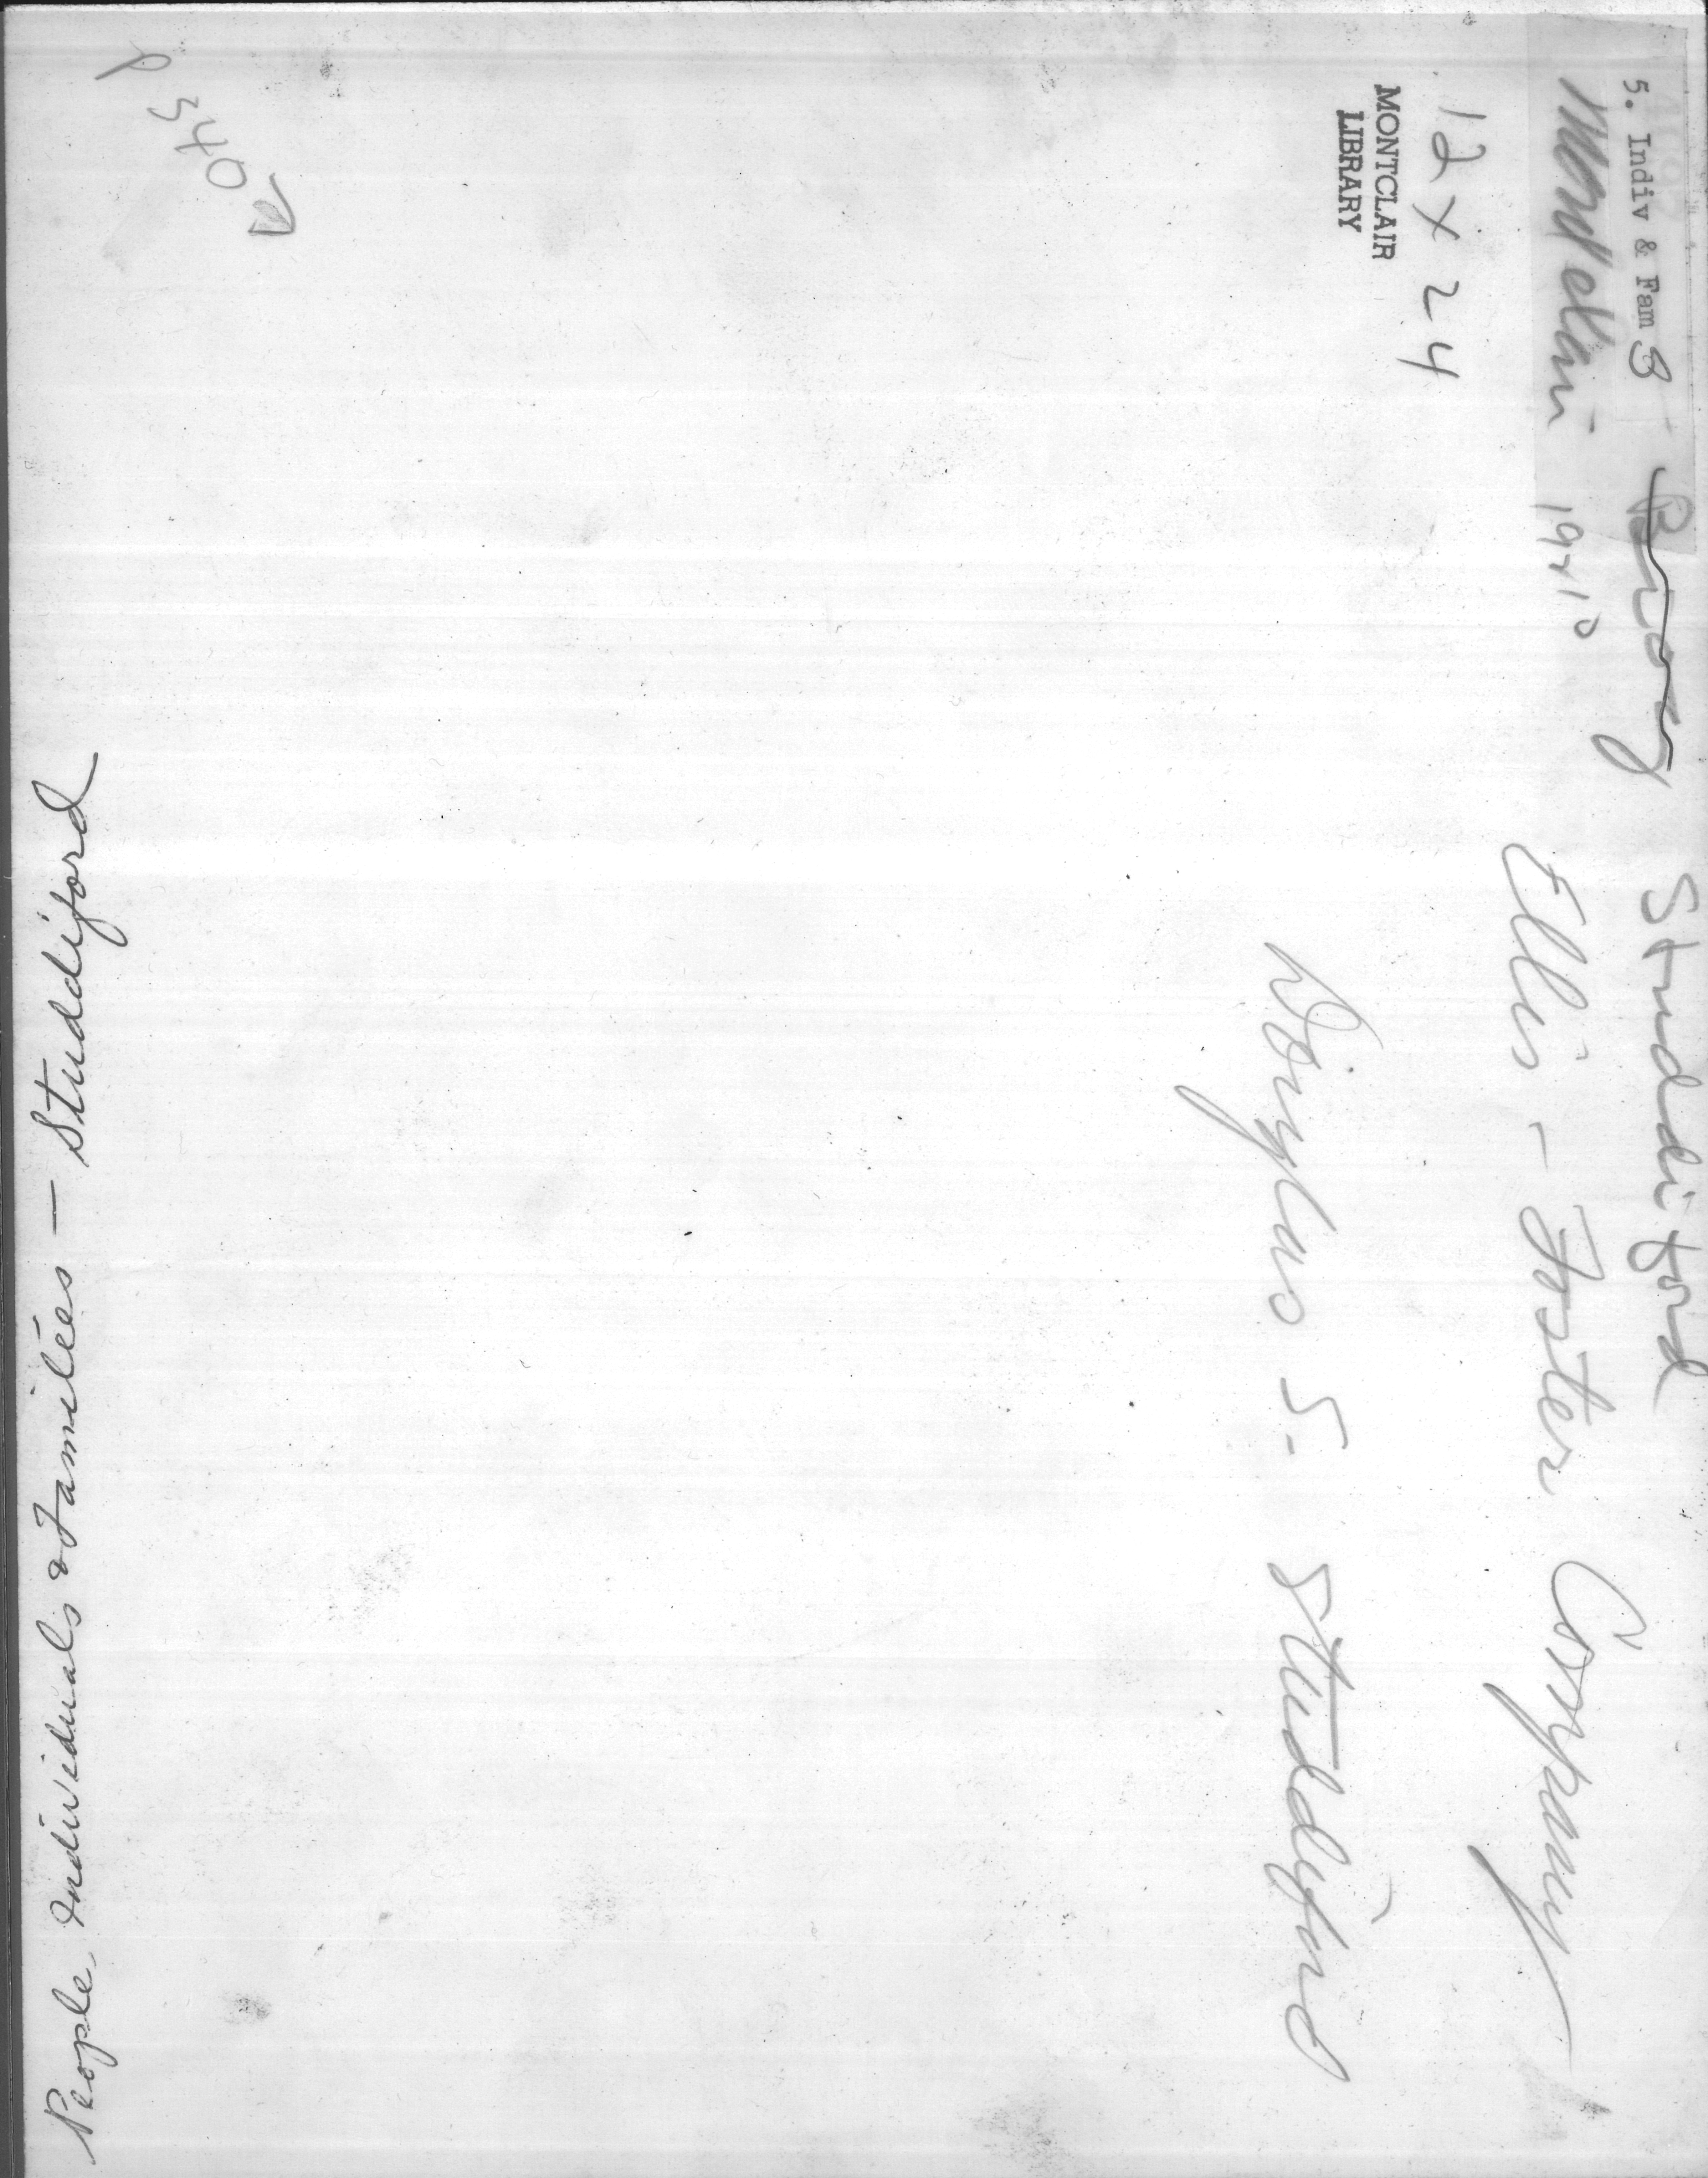 5. Indiv & Fam B
Studdiford
Montclair
Ellis - Foster Company
12 x 24
MONTCLAIR
LIBRARY
Douglas S. Studdiford
People, Individuals & Families — Studdiford